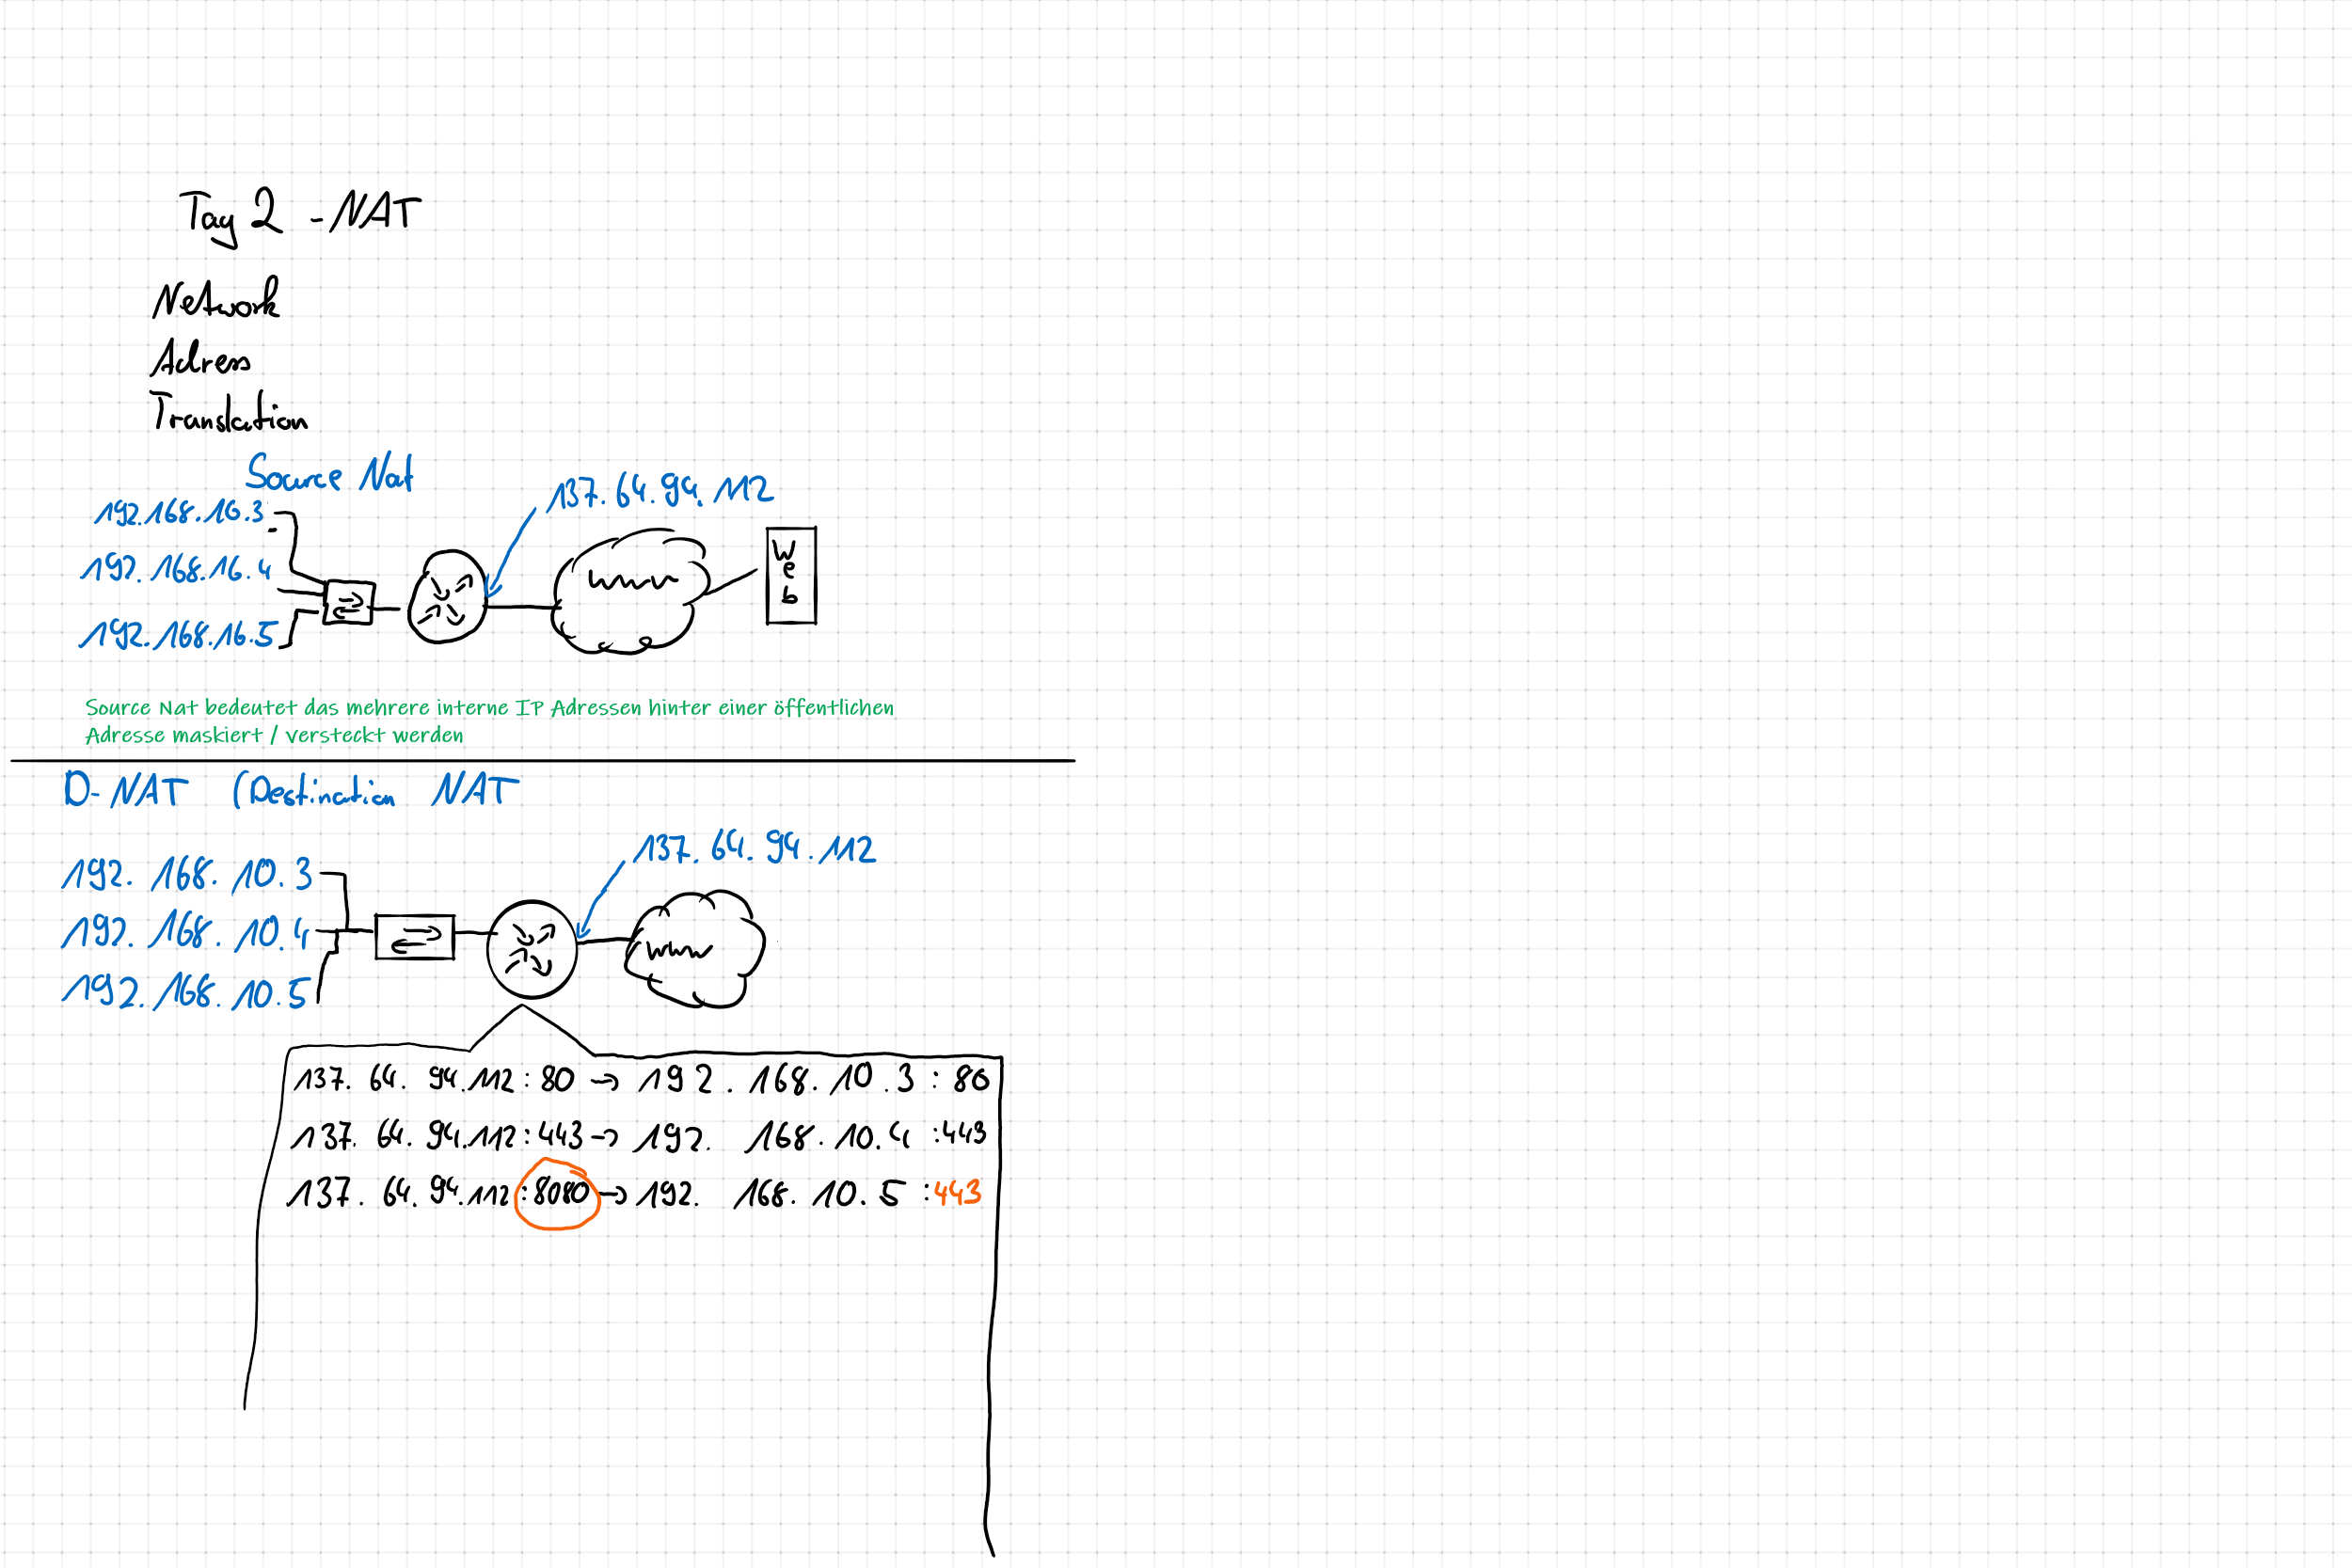 Tag 2 - NAT
Network
Adress
Translation
Source Nat
137.64.94.112
192.168.16.3
192.168.16.4
192.168.16.5
www
Web
Source Nat bedeutet das mehrere interne IP Adressen hinter einer öffentlichen
Adresse maskiert / versteckt werden
D-NAT (Destination NAT
137.64.94.112
192.168.10.3
192.168.10.4
192.168.10.5
www
137.64.94.112:80 → 192.168.10.3:80
137.64.94.112:443 → 192.168.10.4:443
137.64.94.112:8080 → 192.168.10.5:443